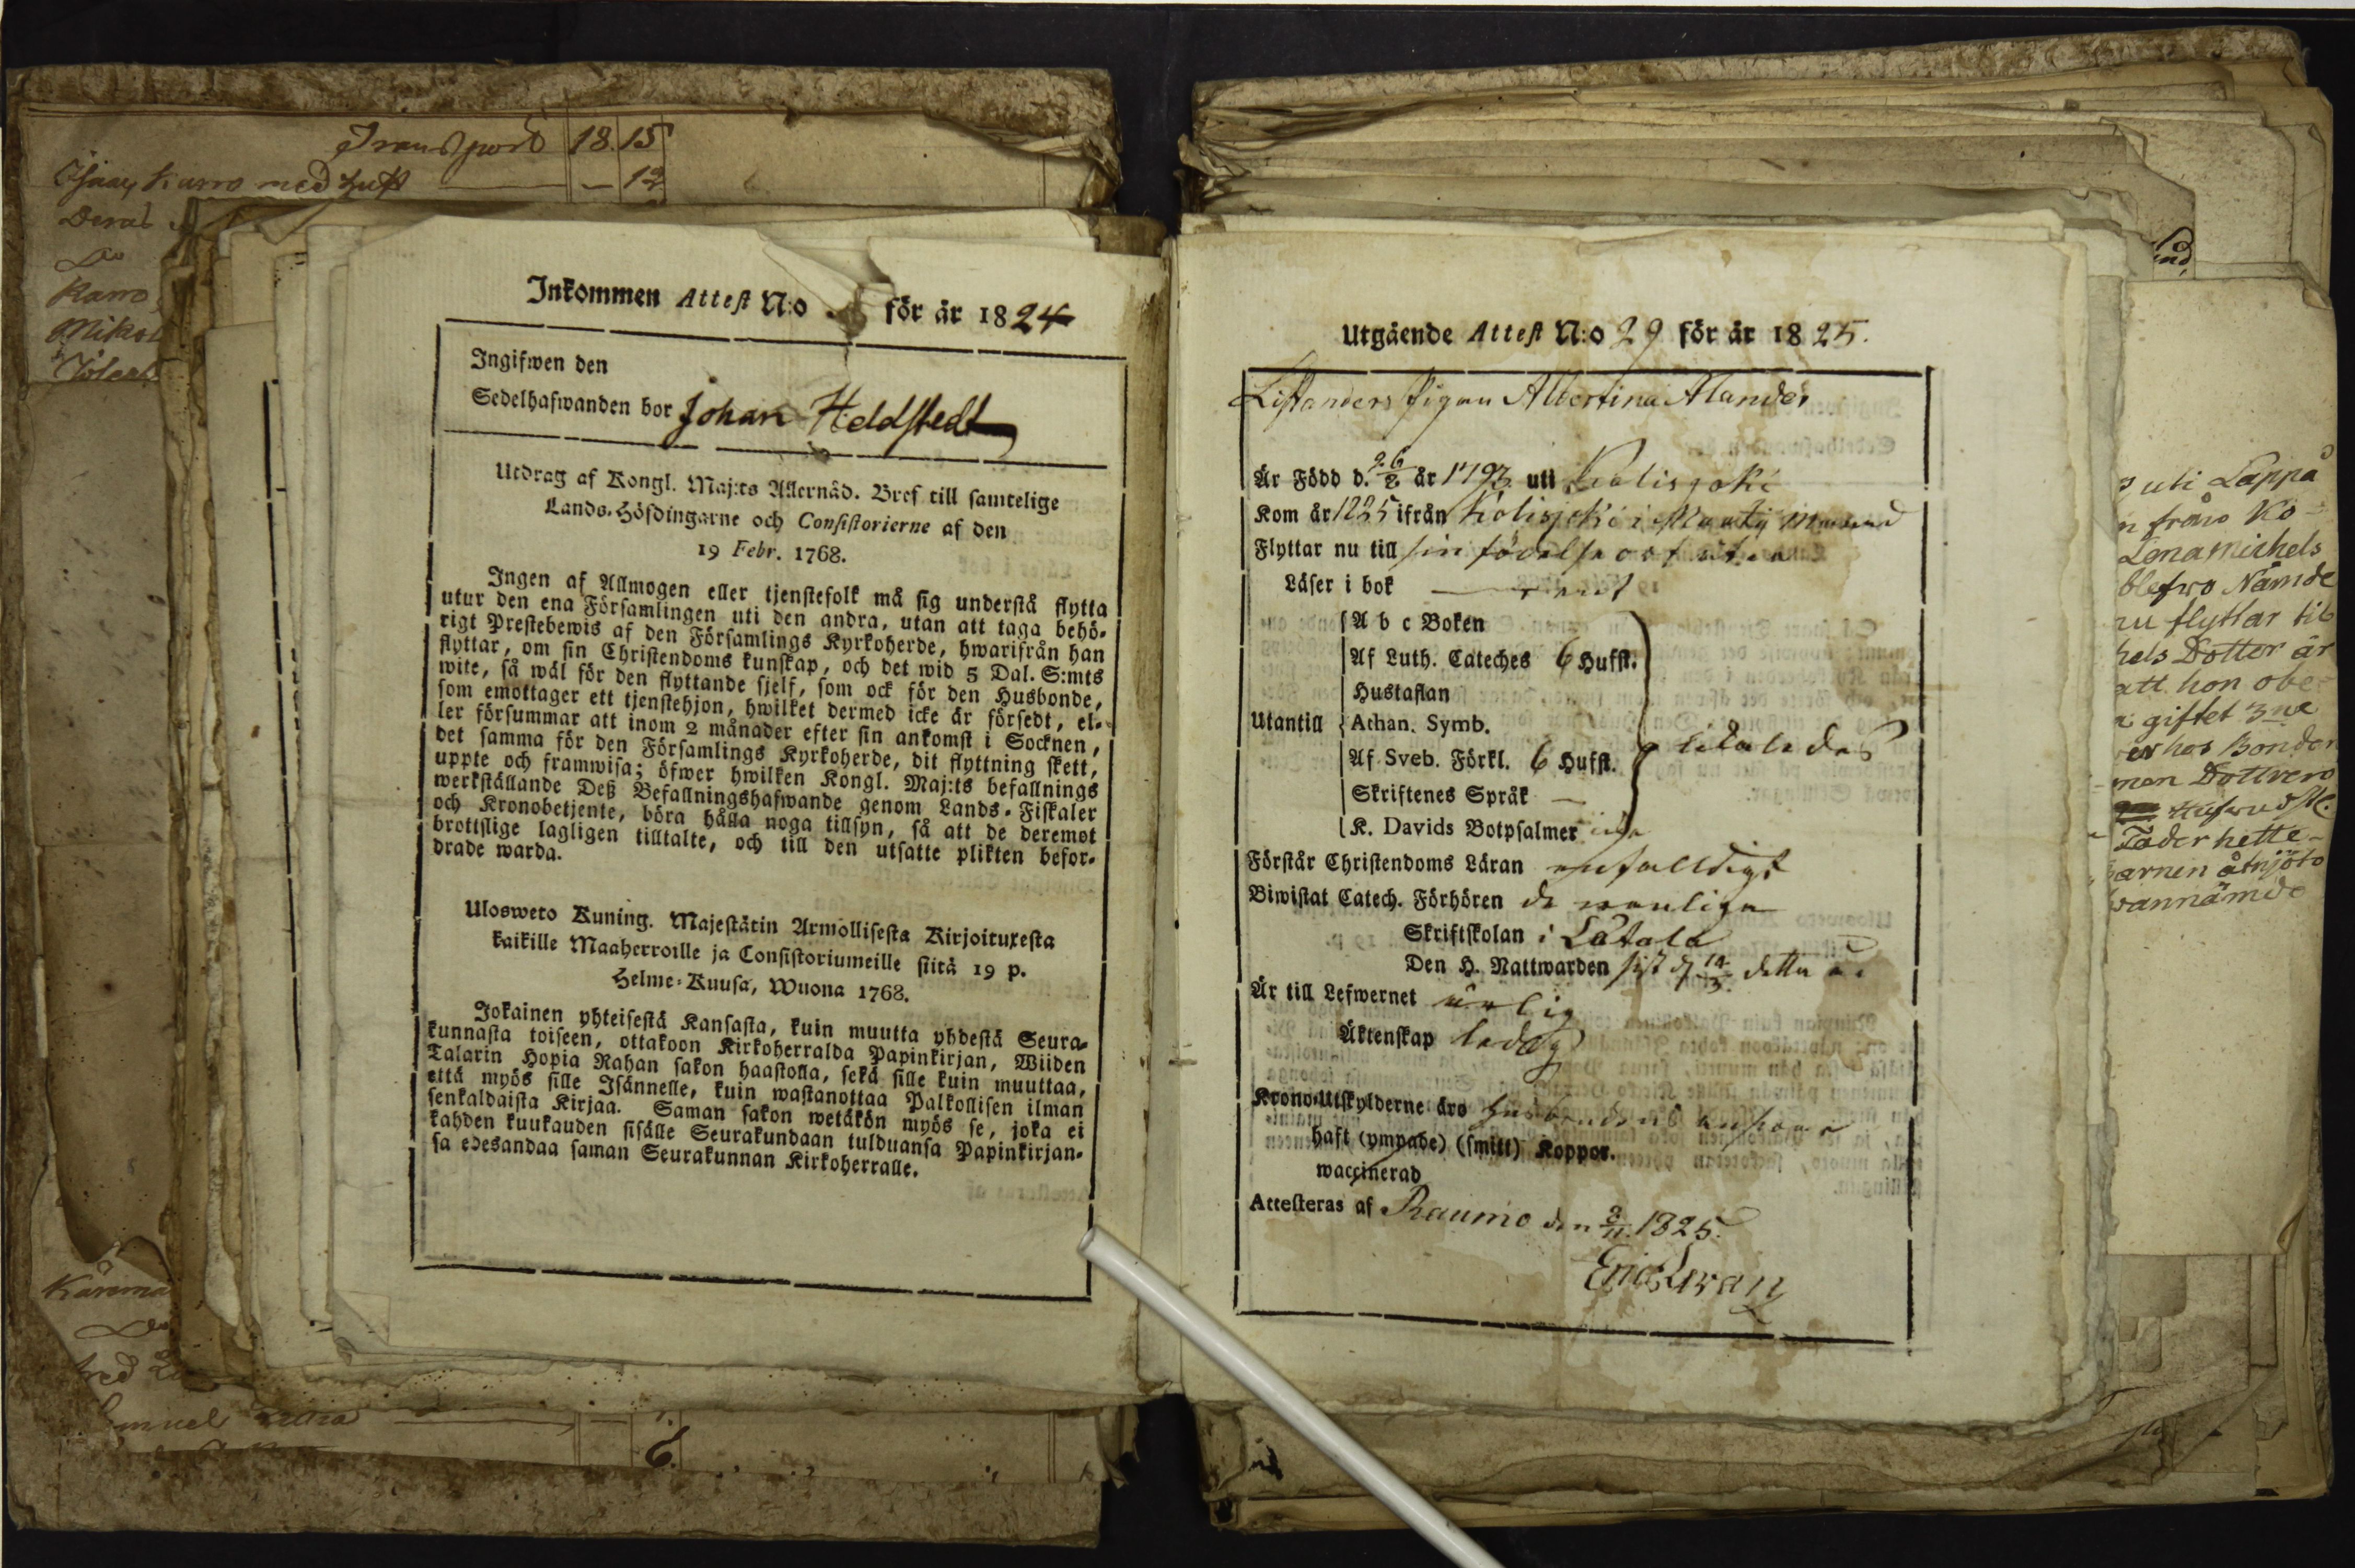 Transport 18. 15
Karro med hust — 12
Derat
Do
Karro
Mikol
Inkommen Attest N:o för år 1824
Ingifwen den
Sedelhafwanden bor Johan Heldstedt
Utdrag af Kongl. Maj:ts Allernåd. Bref till samtelige
Lands-Höfdingarne och Consistorierne af den
19 Febr. 1768.
Ingen af Allmogen eller tjenstefolk må sig understå flytta
utur den ena Församlingen uti den andra, utan att taga behö-
rigt Prestebewis af den Församlings Kyrkoherde, hwarifrån han
flyttar, om sin Christendoms kunskap, och det wid 5 Dal. S:mts
wite, så wäl för den flyttande sjelf, som ock för den Husbonde,
som emottager ett tjenstehjon, hwilket dermed icke är försedt, el-
ler försummar att inom 2 månader efter sin ankomst i Socknen,
det samma för den Församlings Kyrkoherde, dit flyttning skett,
uppte och framwisa; öfwer hwilken Kongl. Maj:ts befallnings
werkställande Deß Befallningshafwande genom Lands-Fiskaler
och Kronobetjente, böra hålla noga tillsyn, så att de deremot
brottslige lagligen tilltalte, och till den utsatte plikten befor-
drade warda.
Ulosweto Kuning. Majestätin Armollisesta Kirjoituxesta
kaikille Maaherroille ja Consistoriumeille siitä 19 p.
Helme-Kuusa, Wuona 1768.
Jokainen yhteisestä Kansasta, kuin muutta yhdestä Seura-
kunnasta toiseen, ottakoon Kirkoherralda Papinkirjan, Wiiden
Talarin Hopia Rahan sakon haastolla, sekä sille kuin muuttaa,
että myös sille Isännelle, kuin wastanottaa Palkollisen ilman
senkaldaista Kirjaa. Saman sakon wetäkön myös se, joka ei
kahden kuukauden sisälle Seurakundaan tulduansa Papinkirjan-
sa edesandaa saman Seurakunnan Kirkoherralle.
Do
6.
Utgående Attest N:o 29 för år 1825.
Listanders Pigan Albertina Alander
Är Född d. 26/2 år 1793 uti Kolisjoki
Kom år 1825 ifrån Kolisjoki i
Flyttar nu till sin födelse ort
Läser i bok — rent
Utantill
A b c Boken
Af Luth. Cateches 6 Hufst.
Hustaflan
Athan. Symb.
Af Sveb. Förkl. 6 Hufst.
Skriftenes Språk —
K. Davids Botpsalmer
Förstår Christendoms Läran enfalldigt
Biwistat Catech. Förhören de wanliga
Skriftskolan i Låtala
Den H. Nattwarden sist d. detta år
Är till Lefwernet ärlig
Äktenskap ledig
Krono-Utskylderne äro
haft (ympade) (smitt) Koppor.
waccinerad
Attesteras af Raumo den 8/11. 1825.
Eric Powan
ind,
uti Lappå
n från Ko-
Lena Michels
blefwo Nämde
nu flyttar til
hels Dotter är
att hon obe-
giftet 3ne
hos Bonden
men Dottren
Fader hette
arnen åtnjöto
wannämde